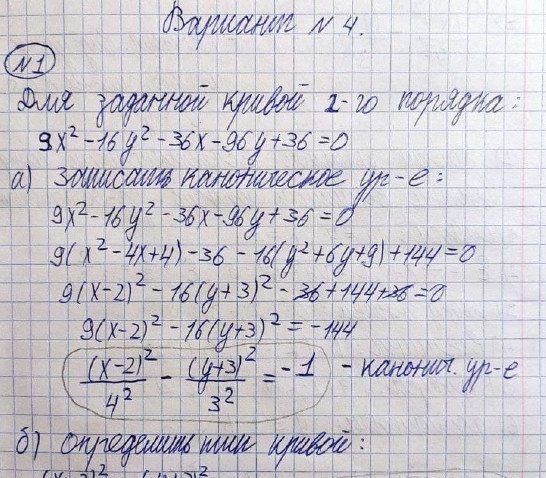 Вариант №4.
№1
Для заданной кривой 2-го порядка:
9x² - 16y² - 36x - 96y + 36 = 0
а) записать каноническое ур-е:
9x² - 16y² - 36x - 96y + 36 = 0
9(x² - 4x + 4) - 36 - 16(y² + 6y + 9) + 144 = 0
9(x-2)² - 16(y+3)² - 36 + 144 + 36 = 0
9(x-2)² - 16(y+3)² = -144
(x-2)²/4² - (y+3)²/3² = -1 - канонич. ур-е
б) определить тип кривой: